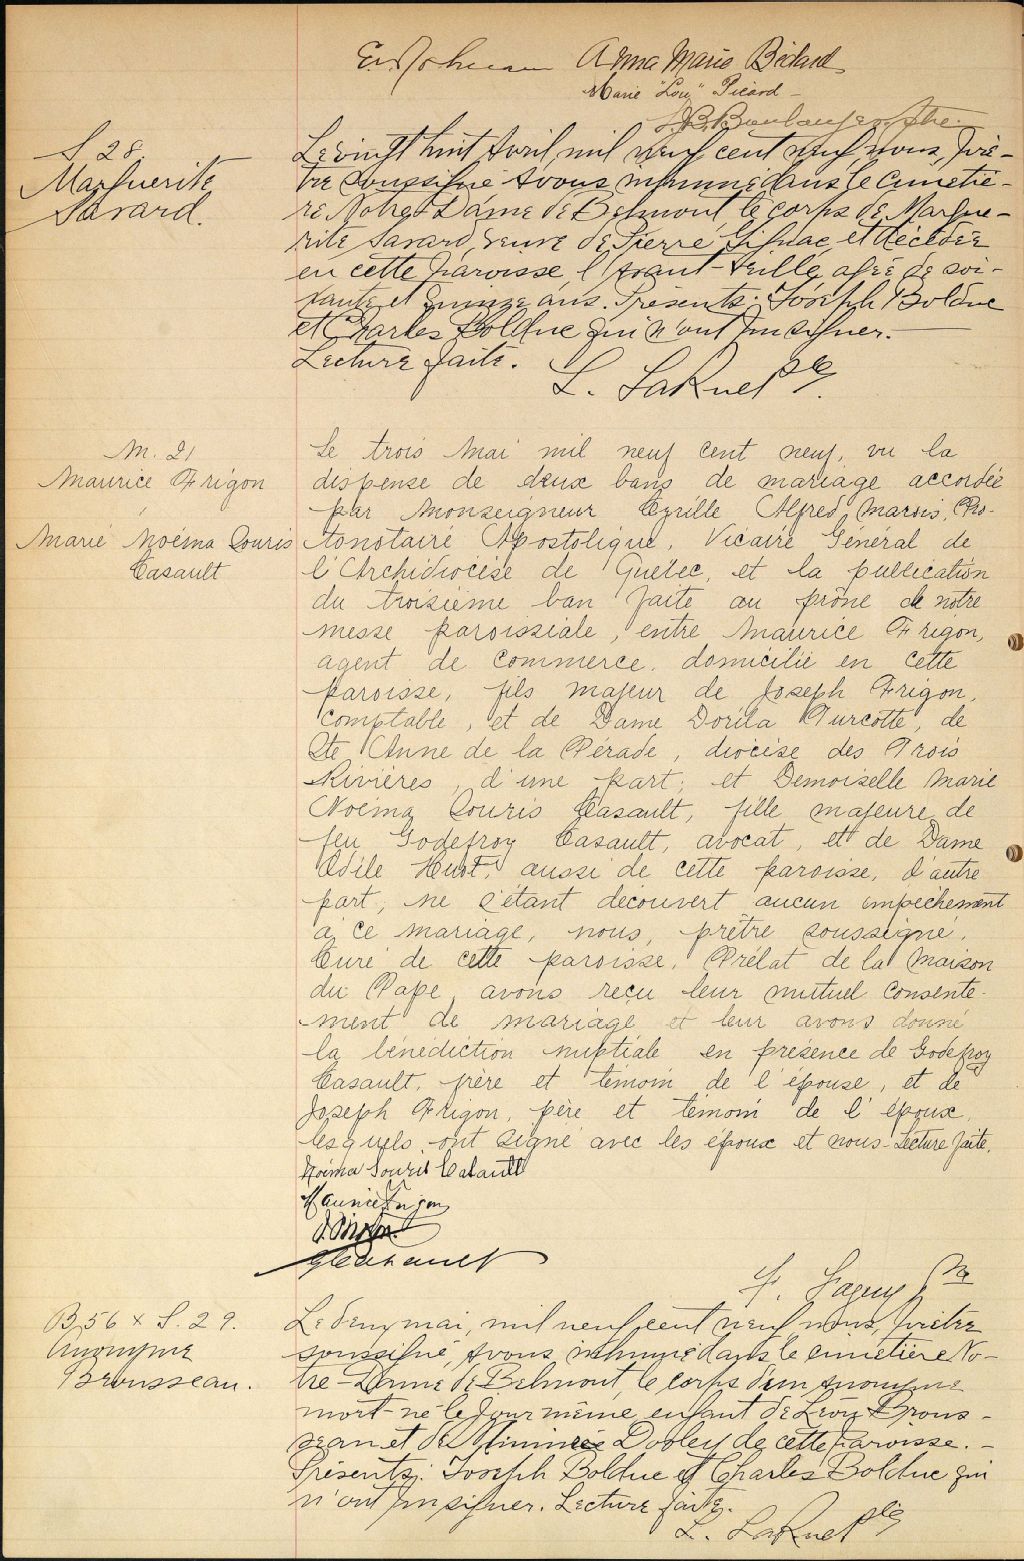 Anna Marie Bédard
Marie "Lou" Picard -
J.B. Boulanger Ptre.
S 28.
Marguerite
Savard.
Le vingt huit Avril, mil neuf cent neuf, nous, Prê-
tre soussigné avons inhumé dans le cimetiè-
re Notre-Dame de Belmont le corps de Margue-
rite Savard, veuve de Pierre Gignac, et décédée
en cette paroisse, l'avant-veille, agée de soi-
xante et quinze ans. Présents: Joseph Bolduc
et Charles Bolduc qui n'ont pu signer.
Lecture faite.
L. LaRue
M. 21
Maurice Frigon
,
Marie Noéma Souris
Casault
Le trois Mai mil neuf cent neuf, vu la
dispense de deux bans de mariage accordée
par Monseigneur Cyrille Alfred Marois, Pro-
tonotaire Apostolique, Vicaire Général de
l'Archidiocèse de Québec, et la publication
du troisième ban faite au prône de notre
messe paroissiale, entre Maurice Frigon,
agent de commerce, domicilié en cette
paroisse, fils majeur de Joseph Frigon,
comptable, et de Dame Dorila Turcotte, de
Ste Anne de la Pérade, diocèse des Trois
Rivières, d'une part; et Demoiselle Marie
Noéma Souris Casault, fille majeure de
feu Godefroy Casault, avocat, et de Dame
Odile Huot, aussi de cette paroisse, d'autre
part, ne s'étant découvert aucun empêchement
à ce mariage, nous, prêtre soussigné,
Curé de cette paroisse, Prélat de la Maison
du Pape, avons reçu leur mutuel consente-
ment de mariage et leur avons donné
la bénédiction nuptiale en présence de Godefroy
Casault, frère et témoin de l'épouse, et de
Joseph Frigon, père et témoin de l'époux,
lesquels ont signé avec les époux et nous. Lecture faite.
Noéma Souris Casault
Maurice Frigon
J. Frigon
G Casault
F. Faguy
B 56 x S. 29.
Anonyme
Brousseau.
Le deux mai, mil neuf cent neuf nous, Prêtre
soussigné, avons inhumé dans le cimetière No-
tre-Dame de Belmont, le corps d'un anonyme
mort-né le jour même, enfant de Léon Brous-
seau et de Dooley de cette paroisse. -
Présents: Joseph Bolduc et Charles Bolduc qui
n'ont pu signer. Lecture faite.
L. LaRue